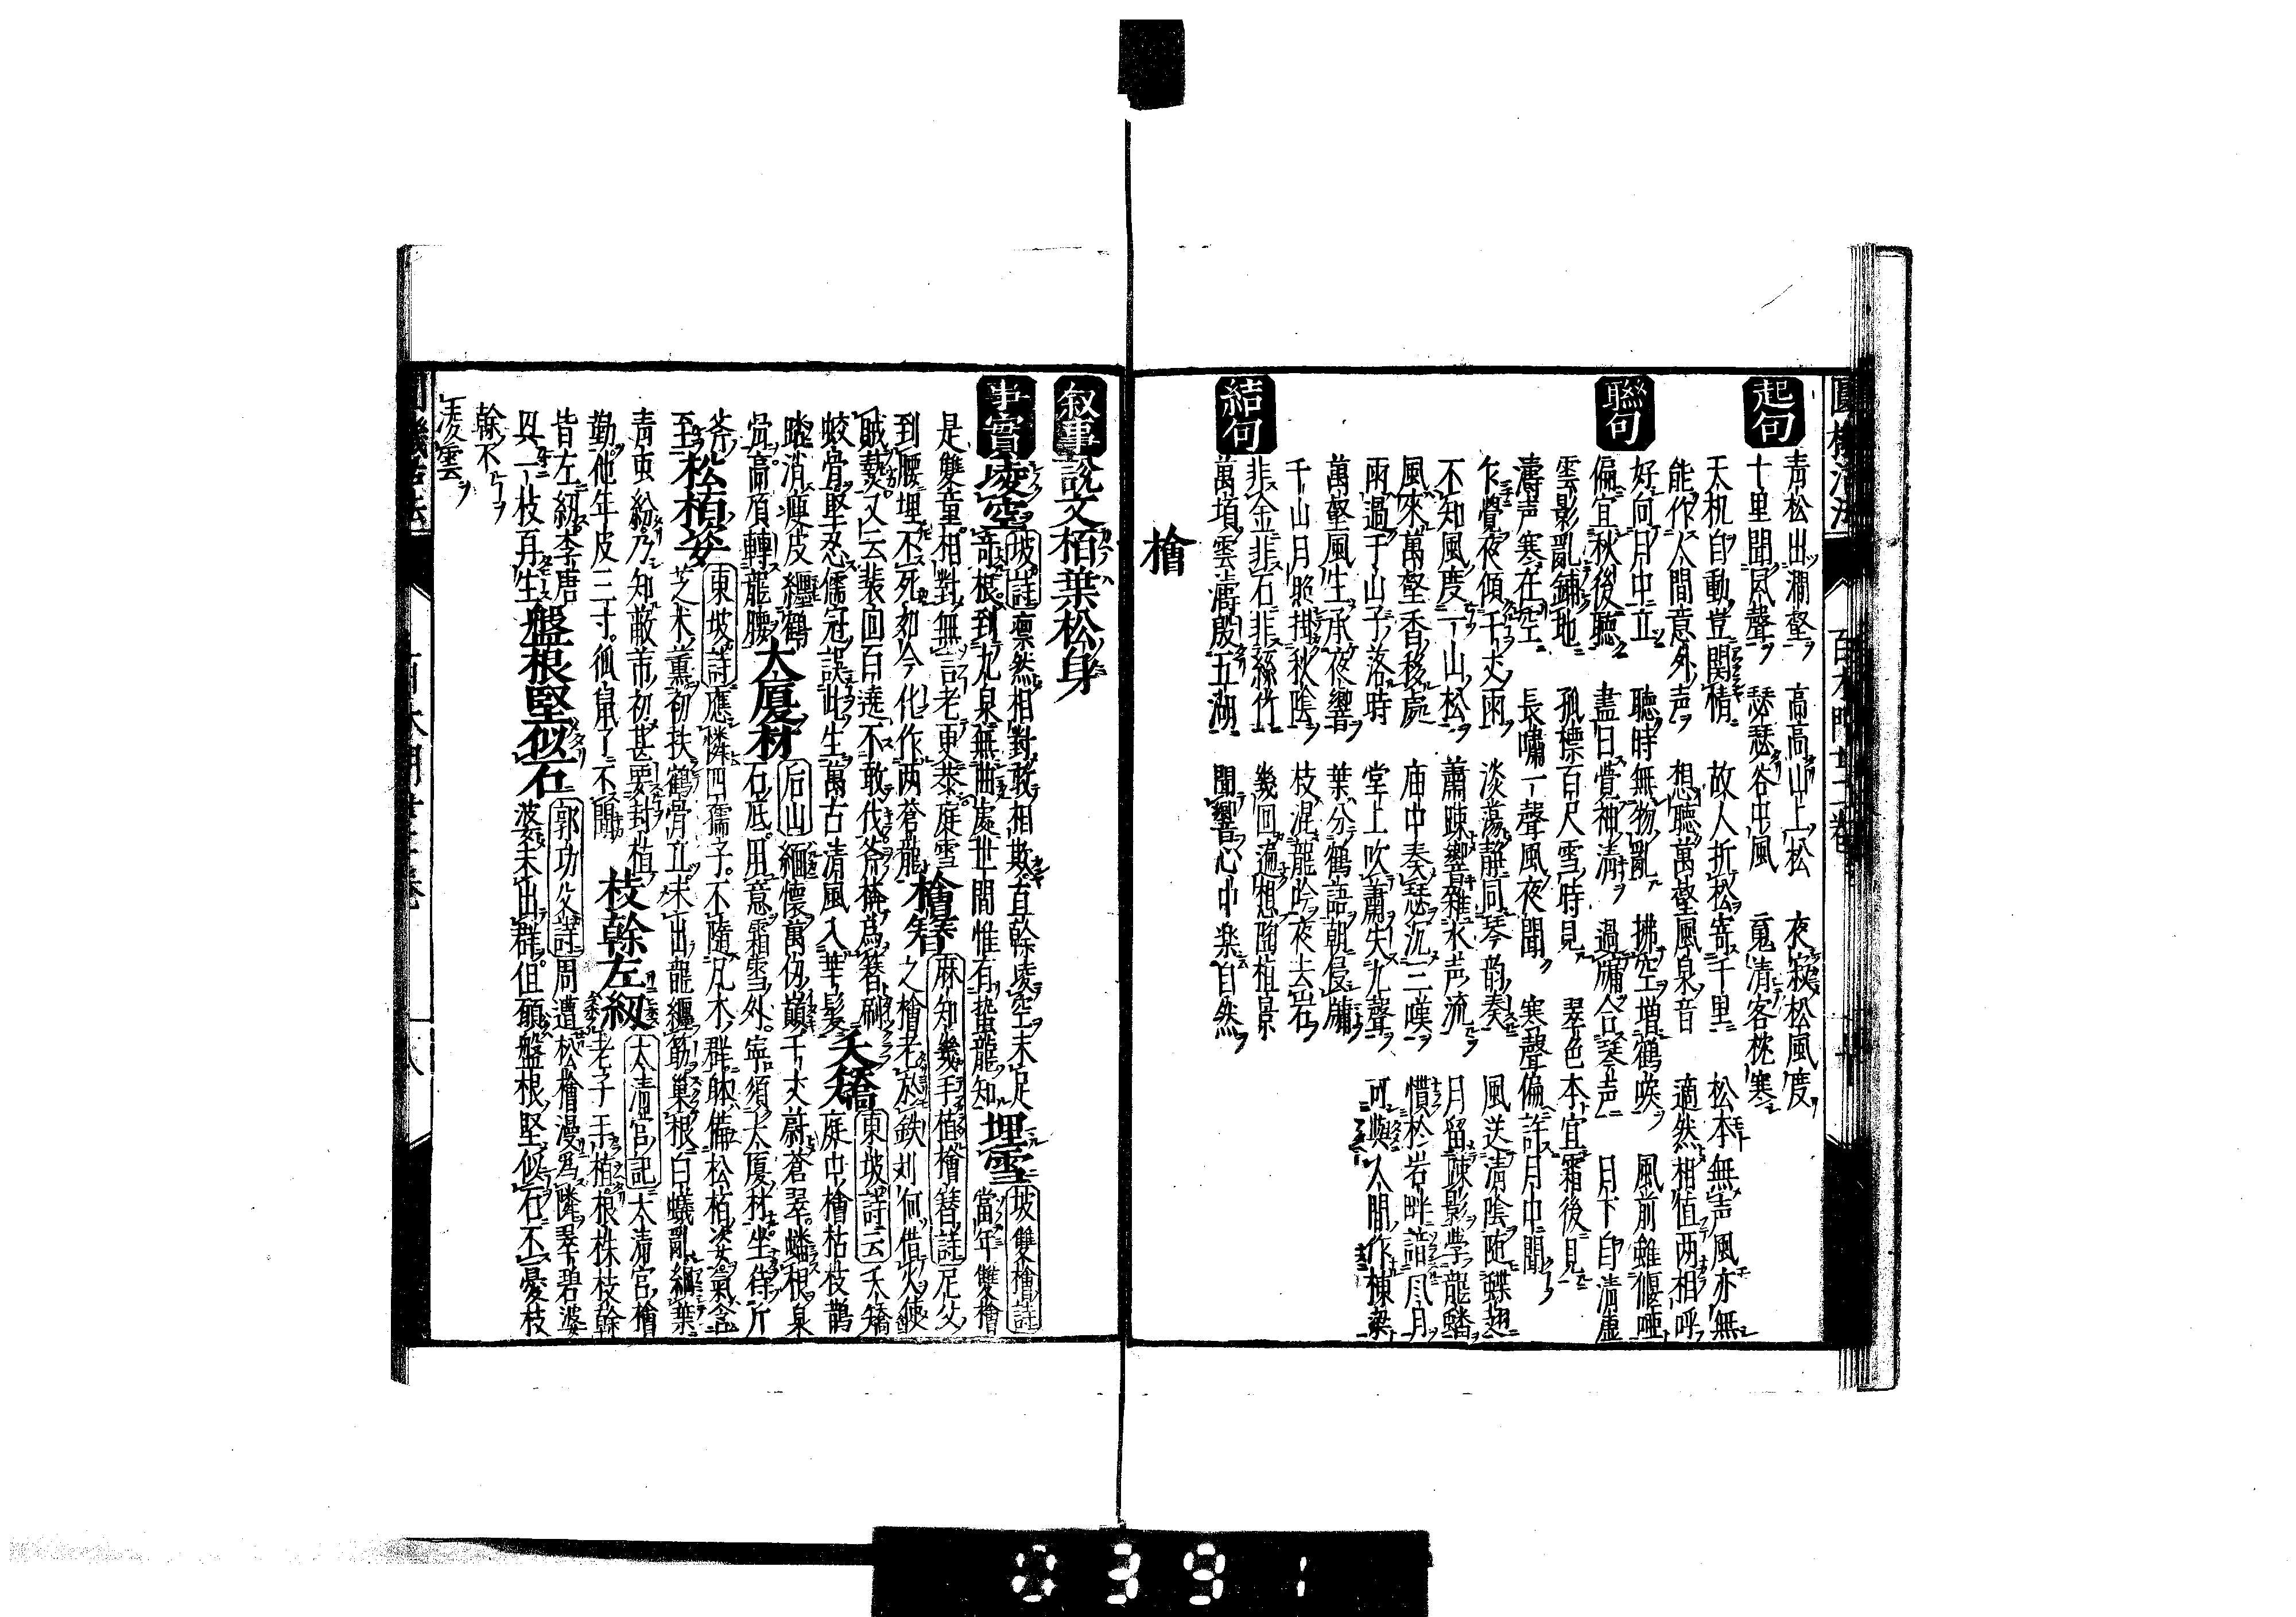 起句
青松出澗壑 高高山上松 夜寂松風度
十里聞風聲 瑟瑟谷中風 夏清客枕寒
太机自動豈関情 故人折松寄千里 松本無声風亦無
能作人間意外声 想聽萬壑風泉音 適然相值两相呼
聯句
好向月中立 聽時無物亂 拂空増鶴唳 風前雖偃
偏宜秋後聽 盡日覺神清 過牗合琴声 月下自清虚
雲影亂鋪地 孤標百尺雪時見 翠色本宜霜後見
濤声寒在空 長嘯一聲風夜聞 寒聲偏許月中聞
乍覺夜傾千丈雨 淡蕩静同琴韵奏 風送清陰随蝶翅
不知風度一山松 蕭踈響雜水声流 月留踈影学龍鱗
風來萬壑香移處 庙中奏瑟沉三嘆 慣於岩畔諳風月
雨過千山子落時 堂上吹蕭失九聲 可與人間作棟梁
萬壑風生承夜響 葉分鶴語朝侵牗
千山月照掛秋陰 枝混龍吟夜去岩
結句
非金非石非絲竹 幾回遍想陶桓景
萬頃雲濤殷五湖 聞響心中楽自然
檜
叙事
說文栢葉松身
事實
凌空 坡詩 凛然相對敢相欺直幹凌空未足 埋雪 坡雙檜詩
竒根到九泉無曲處世間惟有蛰龍知 當年雙檜
是雙童相對無言老更恭庭雪 檜簪 麻知幾手植檜簪詩 尼父
到腰埋不死如今化作两蒼龍 之檜老於鉄刈何借火使
賊爇又云裴回百遶不敢伐斧檜為簪 夭矯 東坡詩云 夭矯
蛟骨堅忍儒冠誤此生萬古清風入華髪 庭中檜枯枝鵲
踏消瘦皮纒鶴 大厦材 后山 緬懷萬仭巔千丈蔚蒼翠蟠根泉
宂高頂轉龍腰 石底用意霜雪外寧須大厦材坐待斤
斧 松栢姿 東坡詩 應憐四孺子不隨凡木群躰備松栢姿氣含
芝术薫初扶鶴骨立未出龍纒筋巢根白蟻亂網葉
青虫紛乃知蔽芾初甚要封植 枝幹左紐 太清宮記 太清宮檜
勤他年皮三寸狐鼠了不聞 老子手植根株枝幹
皆左紐李唐 盤根堅似石 郭功父詩 周遭松檜漫為隣翠碧婆
其一枝再生 娑未出群但願盤根堅似石不憂枝
幹不
凌雲